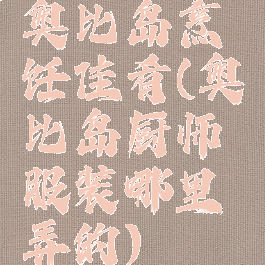 奥比岛烹
饪佳肴(奥
比岛厨师
服装哪里
弄的)